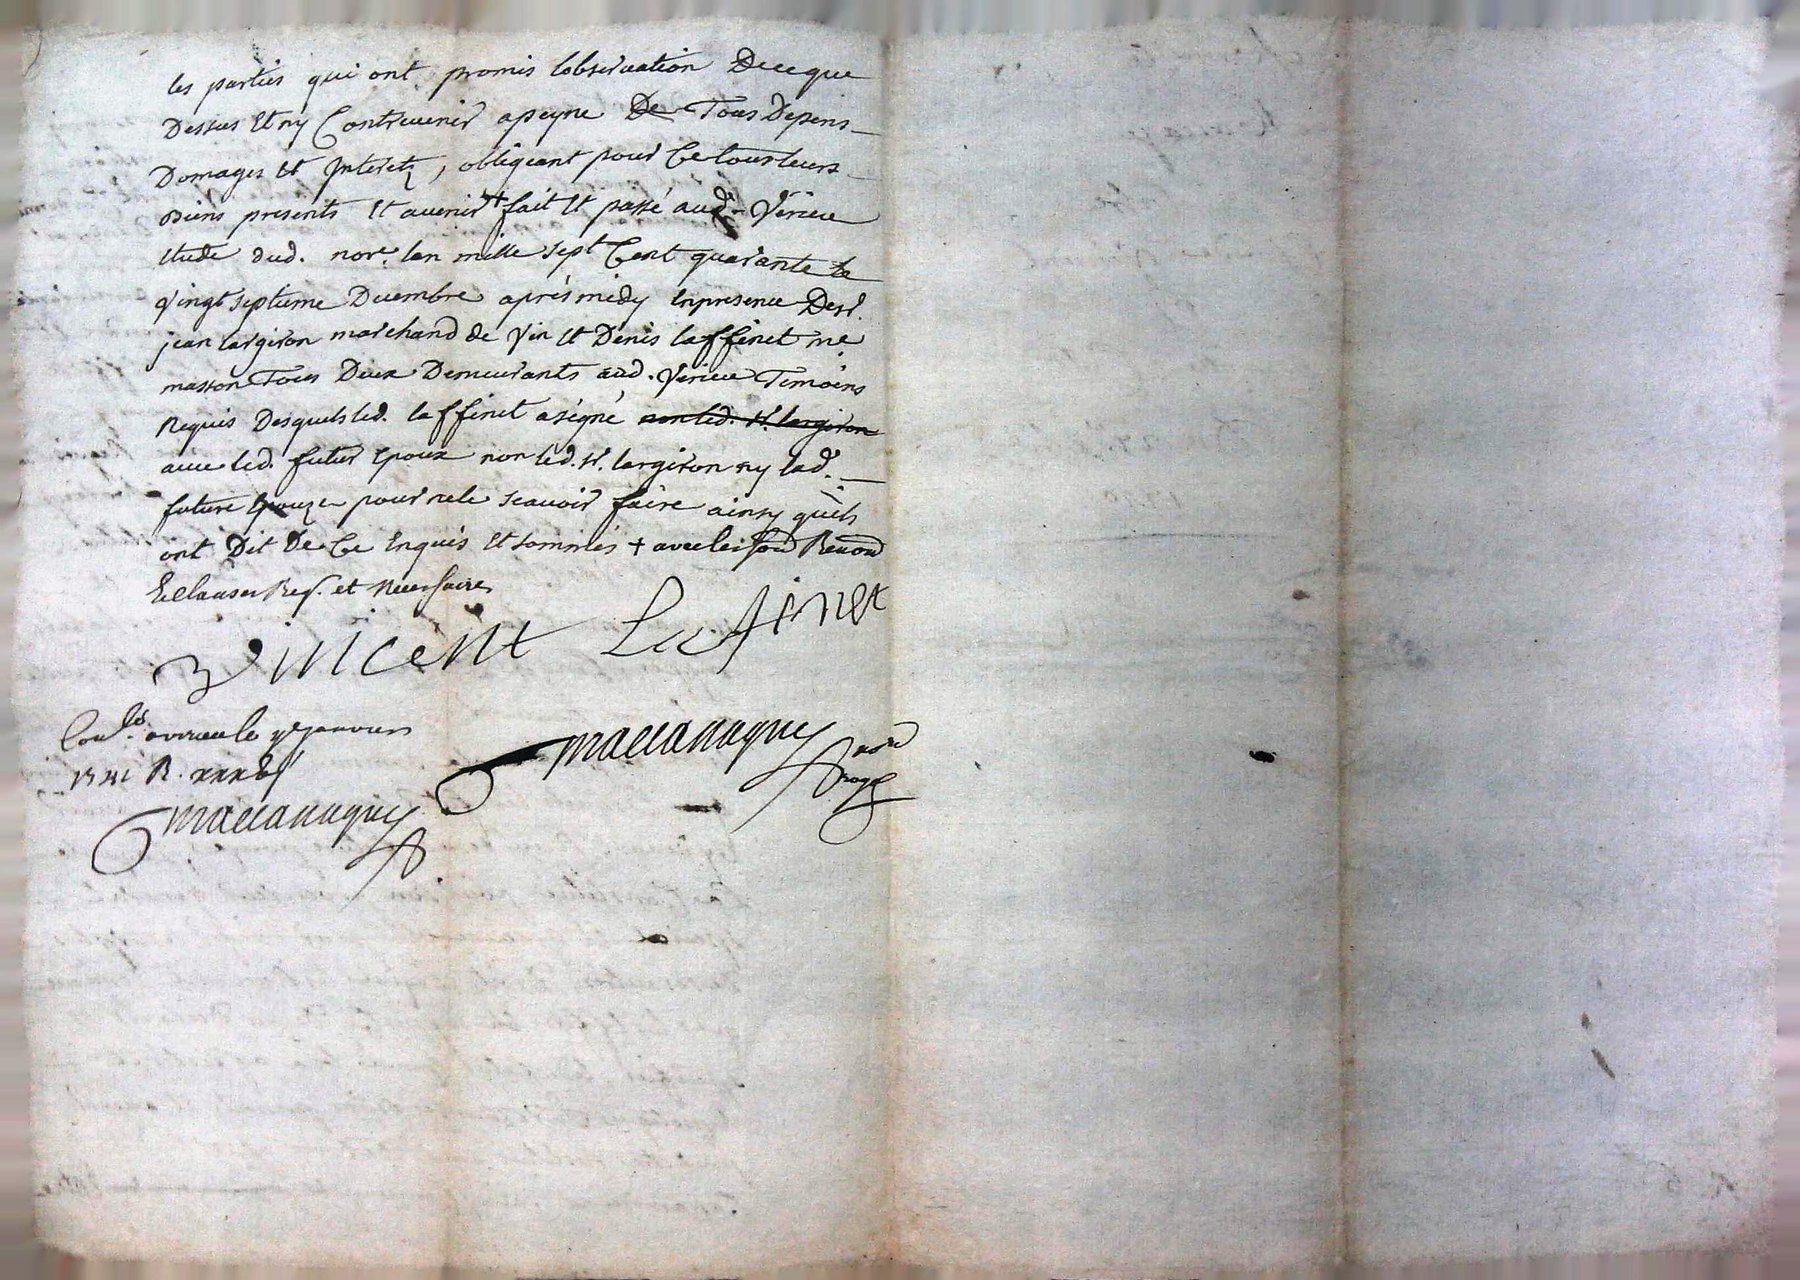 les parties qui ont promis lobseruation Deceque
Dessus Et ny Contreuenir apeyne De Tous Depens
Domages Et Interetz, obligeant pour Ce tous leurs
Biens presents Et auenir + fait Et passé aud. Virieu
Etude dud. nore. lan mille sept Cent quarante le
vingt septieme Decembre aprés midy Enpresence Des.r
jean largiron marchand de Vin Et Denis laffinet me
masson Tous Deux Demeurants aud. Virieu Temoins
Requis Desquels led. laffinet asigné non led. sr. largiron
auec led. futur Epoux non led. sr. largiron ny lad.
future Epouze pour nele scauoir faire ainsy quils
ont Dit De Ce Enquis Et sommés + auec les Renon
Et Clauses Req. et Necessaires
Vincent La finet
Con.lé a virieu le janvier
1741 R.